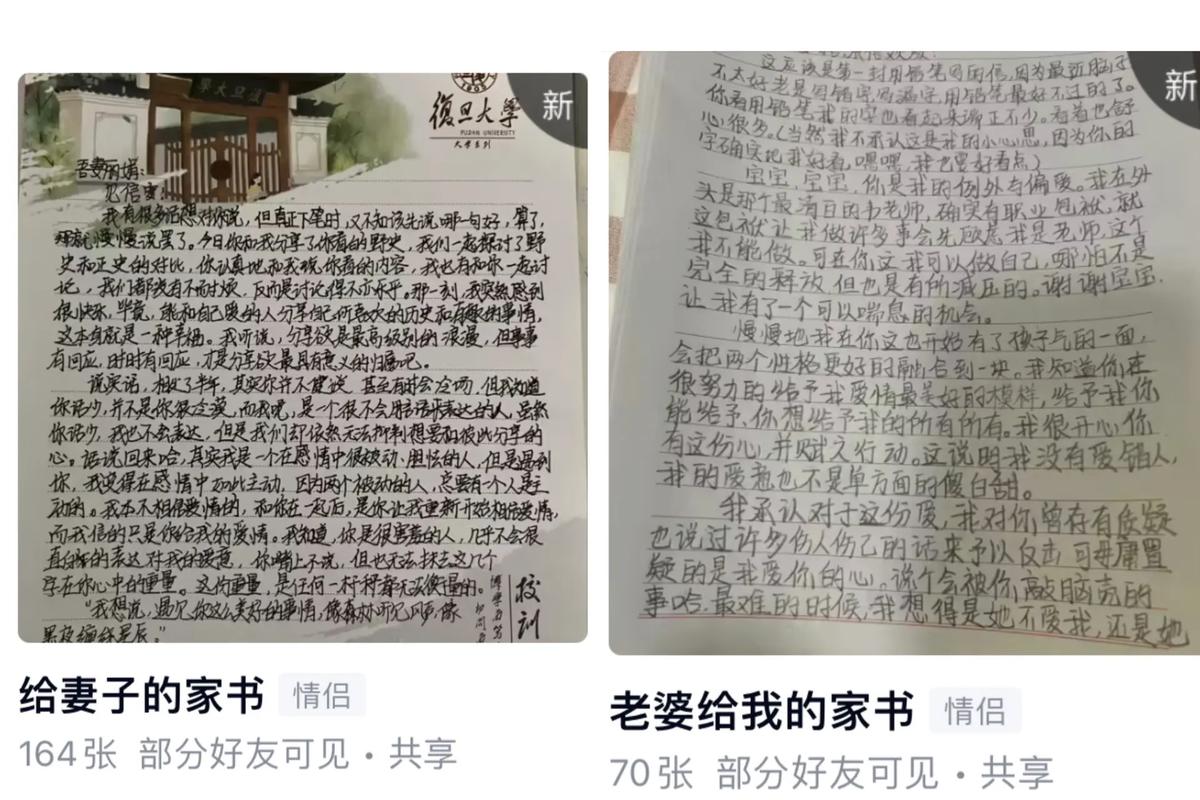 新
復旦大學
FUDAN UNIVERSITY
大学系列
吾妻丽娟:
见信安
我有很多话想对你说，但真正下笔时，又不知该先说哪一句好，算了，
那就慢慢说罢了。今日你和我分享了你看的野史，我们一起探讨了野
史和正史的对比，你认真地和我说你看的内容，我也有和你一起讨
论，我们都没有不耐烦，反而是讨论得不亦乐乎。那一刻，我突然感到
很快乐，毕竟，能和自己爱的人分享自己所喜欢的历史和有趣的事情，
这本身就是一种幸福。我听说，分享欲是最高级别的浪漫，但事事
有回应，时时有回应，才是分享欲最具有意义的归属吧。
说实话，相处了半年，其实你并不健谈，甚至有时会冷场，但我知道
你话少，并不是你很冷漠，而我呢，是一个很不会用话语表达的人，虽然
你话少，我也不会表达，但是我们却依然无法抑制想要和彼此分享的
心。话说回来哈，其实我是一个在感情中很被动、胆怯的人，但是遇到
你，我变得在感情中如此主动，因为两个被动的人，总要有一个人是主
动的。我本不相信爱情的，和你在一起后，是你让我重新开始相信爱情，
而我信的只是你给我的爱情。我知道，你是很害羞的人，几乎不会很
直白的表达对我的爱意，你嘴上不说，但也无法抹去这几个
字在你心中的重量。这份重量，是任何一杆秤都无法衡量的。
“我想说，遇见你这么美好的事情，像森林听见风声，像
黑夜缠绵星辰。”
校训
给妻子的家书 情侣
164张 部分好友可见·共享
新
这应该是第一封用铅笔写的信，因为最近脑子
不太好老是写错字写漏字，用铅笔最好不过的了。
你看用铅笔我的字也看起来端正不少。看着也舒
心很多。（当然我不承认这是我的小心思，因为你的
字确实比我好看，嘿嘿，我也要好看点）
宝宝，宝宝，你是我的例外与偏爱。我在外
头是那个最清白的书老师，确实有职业包袱，就
这包袱让我做许多事会先顾忌我是老师，这个
我不能做。可在你这我可以做自己，哪怕不是
完全的释放，但也是有所减压的。谢谢宝宝，
让我有了一个可以喘息的机会。
慢慢地我在你这也开始有了孩子气的一面，
会把两个性格更好的融合到一块。我知道你在
很努力的给予我爱情最美好的模样，给予我你
能给予，你想给予我的所有所有。我很开心，你
有这份心，并赋之行动。这说明我没有爱错人，
我的爱意也不是单方面的傻白甜。
我承认对于这份爱，我对你曾存有质疑
也说过许多伤人伤己的话来予以反击，可毋庸置
疑的是我爱你的心。说个会被你敲脑壳的
事哈，最难的时候，我想得是她不爱我，还是她
老婆给我的家书 情侣
70张 部分好友可见·共享